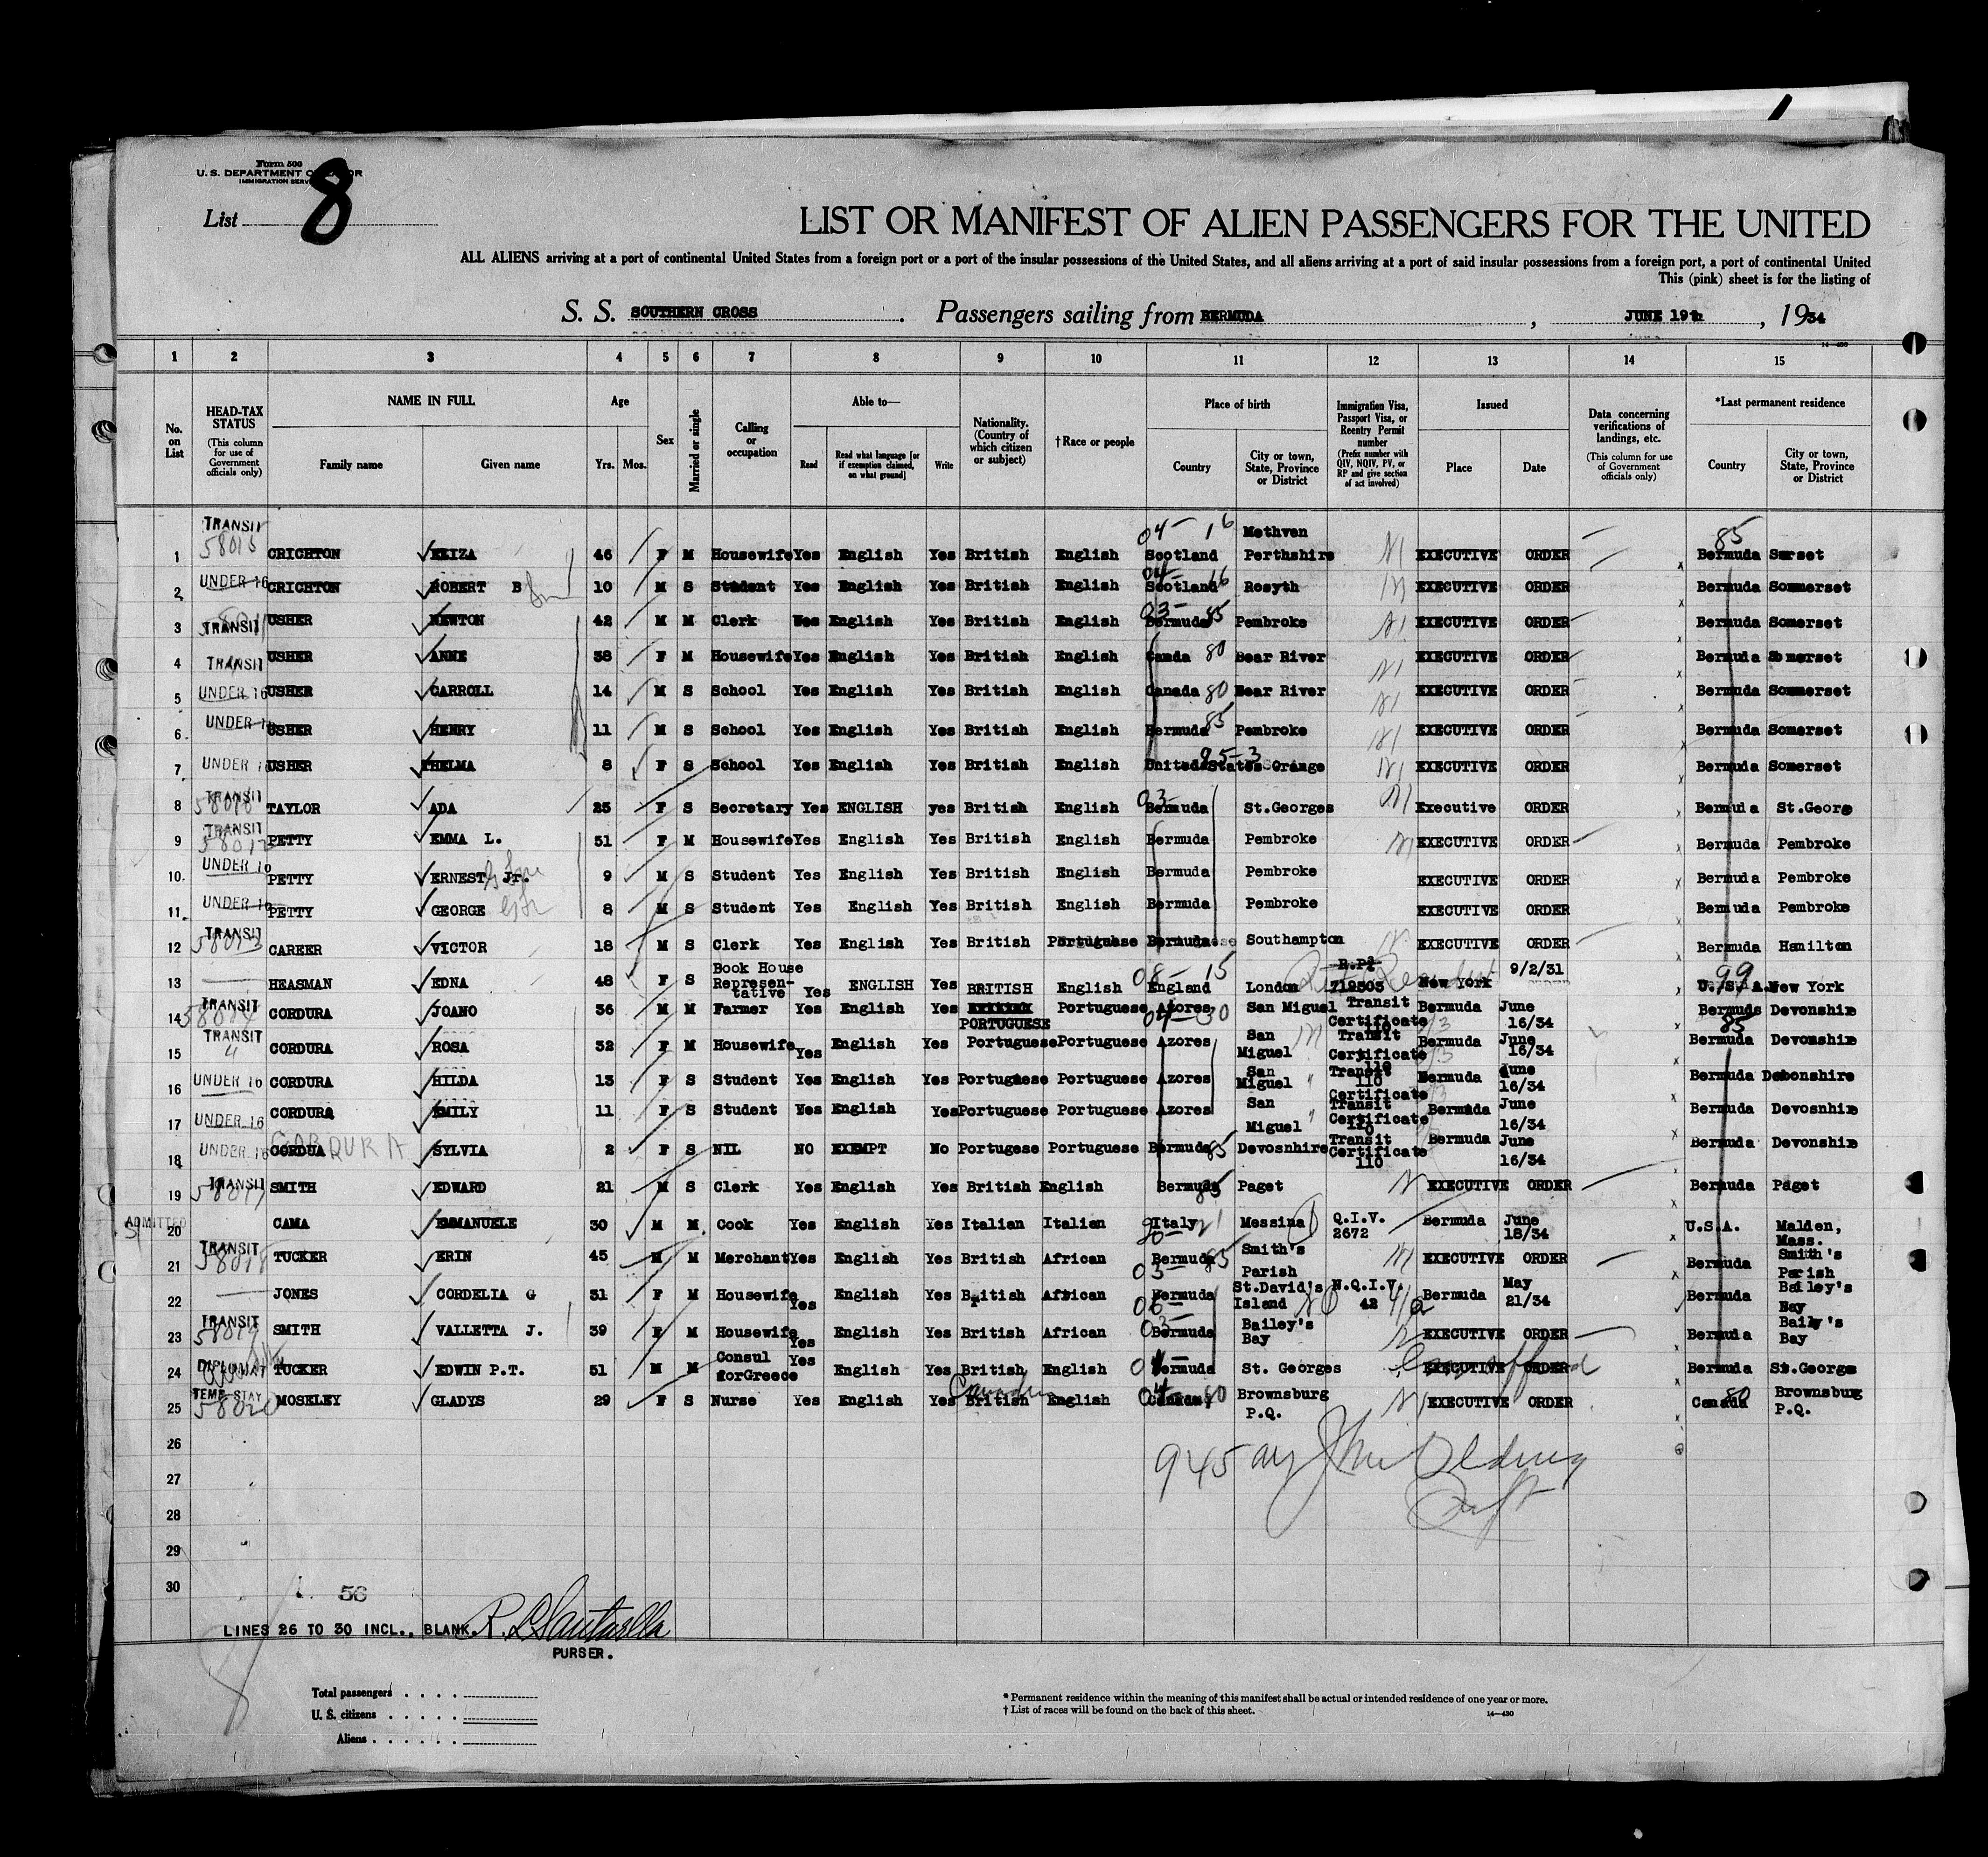 Form 500
U. S. DEPARTMENT OF LABOR
IMMIGRATION SERVICE
List 8
LIST OR MANIFEST OF ALIEN PASSENGERS FOR THE UNITED
ALL ALIENS arriving at a port of continental United States from a foreign port or a port of the insular possessions of the United States, and all aliens arriving at a port of said insular possessions from a foreign port, a port of continental United
This (pink) sheet is for the listing of
S. S. SOUTHERN CROSS . Passengers sailing from BERMUDA , JUNE 19th , 1934
1 2 3 4 5 6 7 8 9 10 11 12 13 14 15
No. on List
HEAD-TAX STATUS (This column for use of Government officials only)
NAME IN FULL Family name Given name
Age Yrs. Mos.
Sex
Married or single
Calling or occupation
Able to— Read Read what language [or if exemption claimed, on what ground] Write
Nationality. (Country of which citizen or subject)
† Race or people
Place of birth Country City or town, State, Province or District
Immigration Visa, Passport Visa, or Reentry Permit number (Prefix number with QIV, NQIV, PV, or RP and give section of act involved)
Issued Place Date
Data concerning verifications of landings, etc. (This column for use of Government officials only)
*Last permanent residence Country City or town, State, Province or District
1 TRANSIT CRICHTON ELIZA 46 F M Housewife Yes English Yes British English Scotland Methven Perthshire EXECUTIVE ORDER Bermuda Smrset
2 UNDER 16 CRICHTON ROBERT B 10 M S Student Yes English Yes British English Scotland Rosyth EXECUTIVE ORDER Bermuda Sommerset
3 TRANSIT USHER NEWTON 42 M M Clerk Yes English Yes British English Bermuda 85 Pembroke EXECUTIVE ORDER Bermuda Somerset
4 TRANSIT USHER ANNE 38 F M Housewife Yes English Yes British English Canda 80 Bear River EXECUTIVE ORDER Bermuda Somerset
5 UNDER 16 USHER CARROLL 14 M S School Yes English Yes British English Canada 80 Bear River EXECUTIVE ORDER Bermuda Sommerset
6 UNDER 16 USHER HENRY 11 M S School Yes English Yes British English Bermuda 85 Pembroke EXECUTIVE ORDER Bermuda Somerset
7 UNDER 16 USHER THELMA 8 F S School Yes English Yes British English United States Orange EXECUTIVE ORDER Bermuda Somerset
8 TRANSIT TAYLOR ADA 25 F S Secretary Yes ENGLISH yes British English Bermuda St.Georges Executive ORDER Bermuda St.Georg
9 TRANSIT PETTY EMMA L. 51 F M Housewife Yes English Yes British English Bermuda Pembroke EXECUTIVE ORDER Bermuda Pembroke
10 UNDER 16 PETTY ERNEST Jr. 9 M S Student Yes English Yes British English Bermuda Pembroke EXECUTIVE ORDER Bermuda Pembroke
11 UNDER 16 PETTY GEORGE 8 M S Student Yes English Yes British English Bermuda Pembroke EXECUTIVE ORDER Bermuda Pembroke
12 TRANSIT 58013 CAREER VICTOR 18 M S Clerk Yes English Yes British Portuguese Bermuda Southampton EXECUTIVE ORDER Bermuda Hamilton
13 HEASMAN EDNA 48 F S Book House Represen-tative Yes ENGLISH Yes BRITISH English England London R.P# 719503 New York 9/2/31 U.S.A. New York
14 TRANSIT CORDURA JOANO 36 M M Farmer Yes English Yes PORTUGUESE Portuguese Azores San Miguel Transit Certificate 110 Bermuda June 16/34 Bermuda Devonshie
15 TRANSIT CORDURA ROSA 32 F M Housewife Yes English Yes Portuguese Portuguese Azores San Miguel Transit Certificate 110 Bermuda June 16/34 Bermuda Devonshie
16 UNDER 16 CORDURA HILDA 13 F S Student Yes English Yes Portuguese Portuguese Azores San Miguel Transit 110 Certificate Bermuda June 16/34 Bermuda Debonshire
17 UNDER 16 CORDURA EMILY 11 F S Student Yes English Yes Portuguese Portuguese Azores San Miguel Transit Certificate 110 Bermuda June 16/34 Bermuda Devosnhie
18 UNDER 16 CORDUA SYLVIA 2 F S NIL NO EXEMPT No Portugese Portuguese Bermuda 85 Devosnhire Transit Certificate 110 Bermuda June 16/34 Bermuda Devonshie
19 TRANSIT SMITH EDWARD 21 M S Clerk Yes English Yes British English Bermuda Paget EXECUTIVE ORDER Bermuda Paget
20 ADMITTED CAMA EMMANUELE 30 M M. Cook Yes English Yes Italian Italian Italy Messina Q.I.V. 2672 Bermuda June 18/34 U.S.A. Malden, Mass.
21 TRANSIT 58018 TUCKER ERIN 45 M M Merchant Yes English Yes British African Bermuda 85 Smith's Parish EXECUTIVE ORDER Bermuda Smith's Parish
22 JONES CORDELIA G 31 F M Housewife Yes English Yes British African Bermuda St.David's Island N.Q.I.V. 42 Bermuda May 21/34 Bermuda Bailey's Bay
23 TRANSIT 58019 SMITH VALLETTA J. 39 F M Housewife Yes English Yes British African Bermuda Bailey's Bay EXECUTIVE ORDER Bermuda Baily's Bay
24 DIPLOMAT TUCKER EDWIN P.T. 51 M M Consul forGreece Yes English Yes British English Bermuda St. Georges EXECUTIVE ORDER Bermuda St.George
25 TEMP STAY 58020 MOSELEY GLADYS 29 F S Nurse Yes English Yes Canadian British English Canada 80 Brownsburg P.Q. EXECUTIVE ORDER Canada 80 Brownsburg P.Q.
26
27
28
29
30
56
LINES 26 TO 30 INCL., BLANK.
PURSER.
Total passengers
U. S. citizens
Aliens
* Permanent residence within the meaning of this manifest shall be actual or intended residence of one year or more.
† List of races will be found on the back of this sheet.
14—430